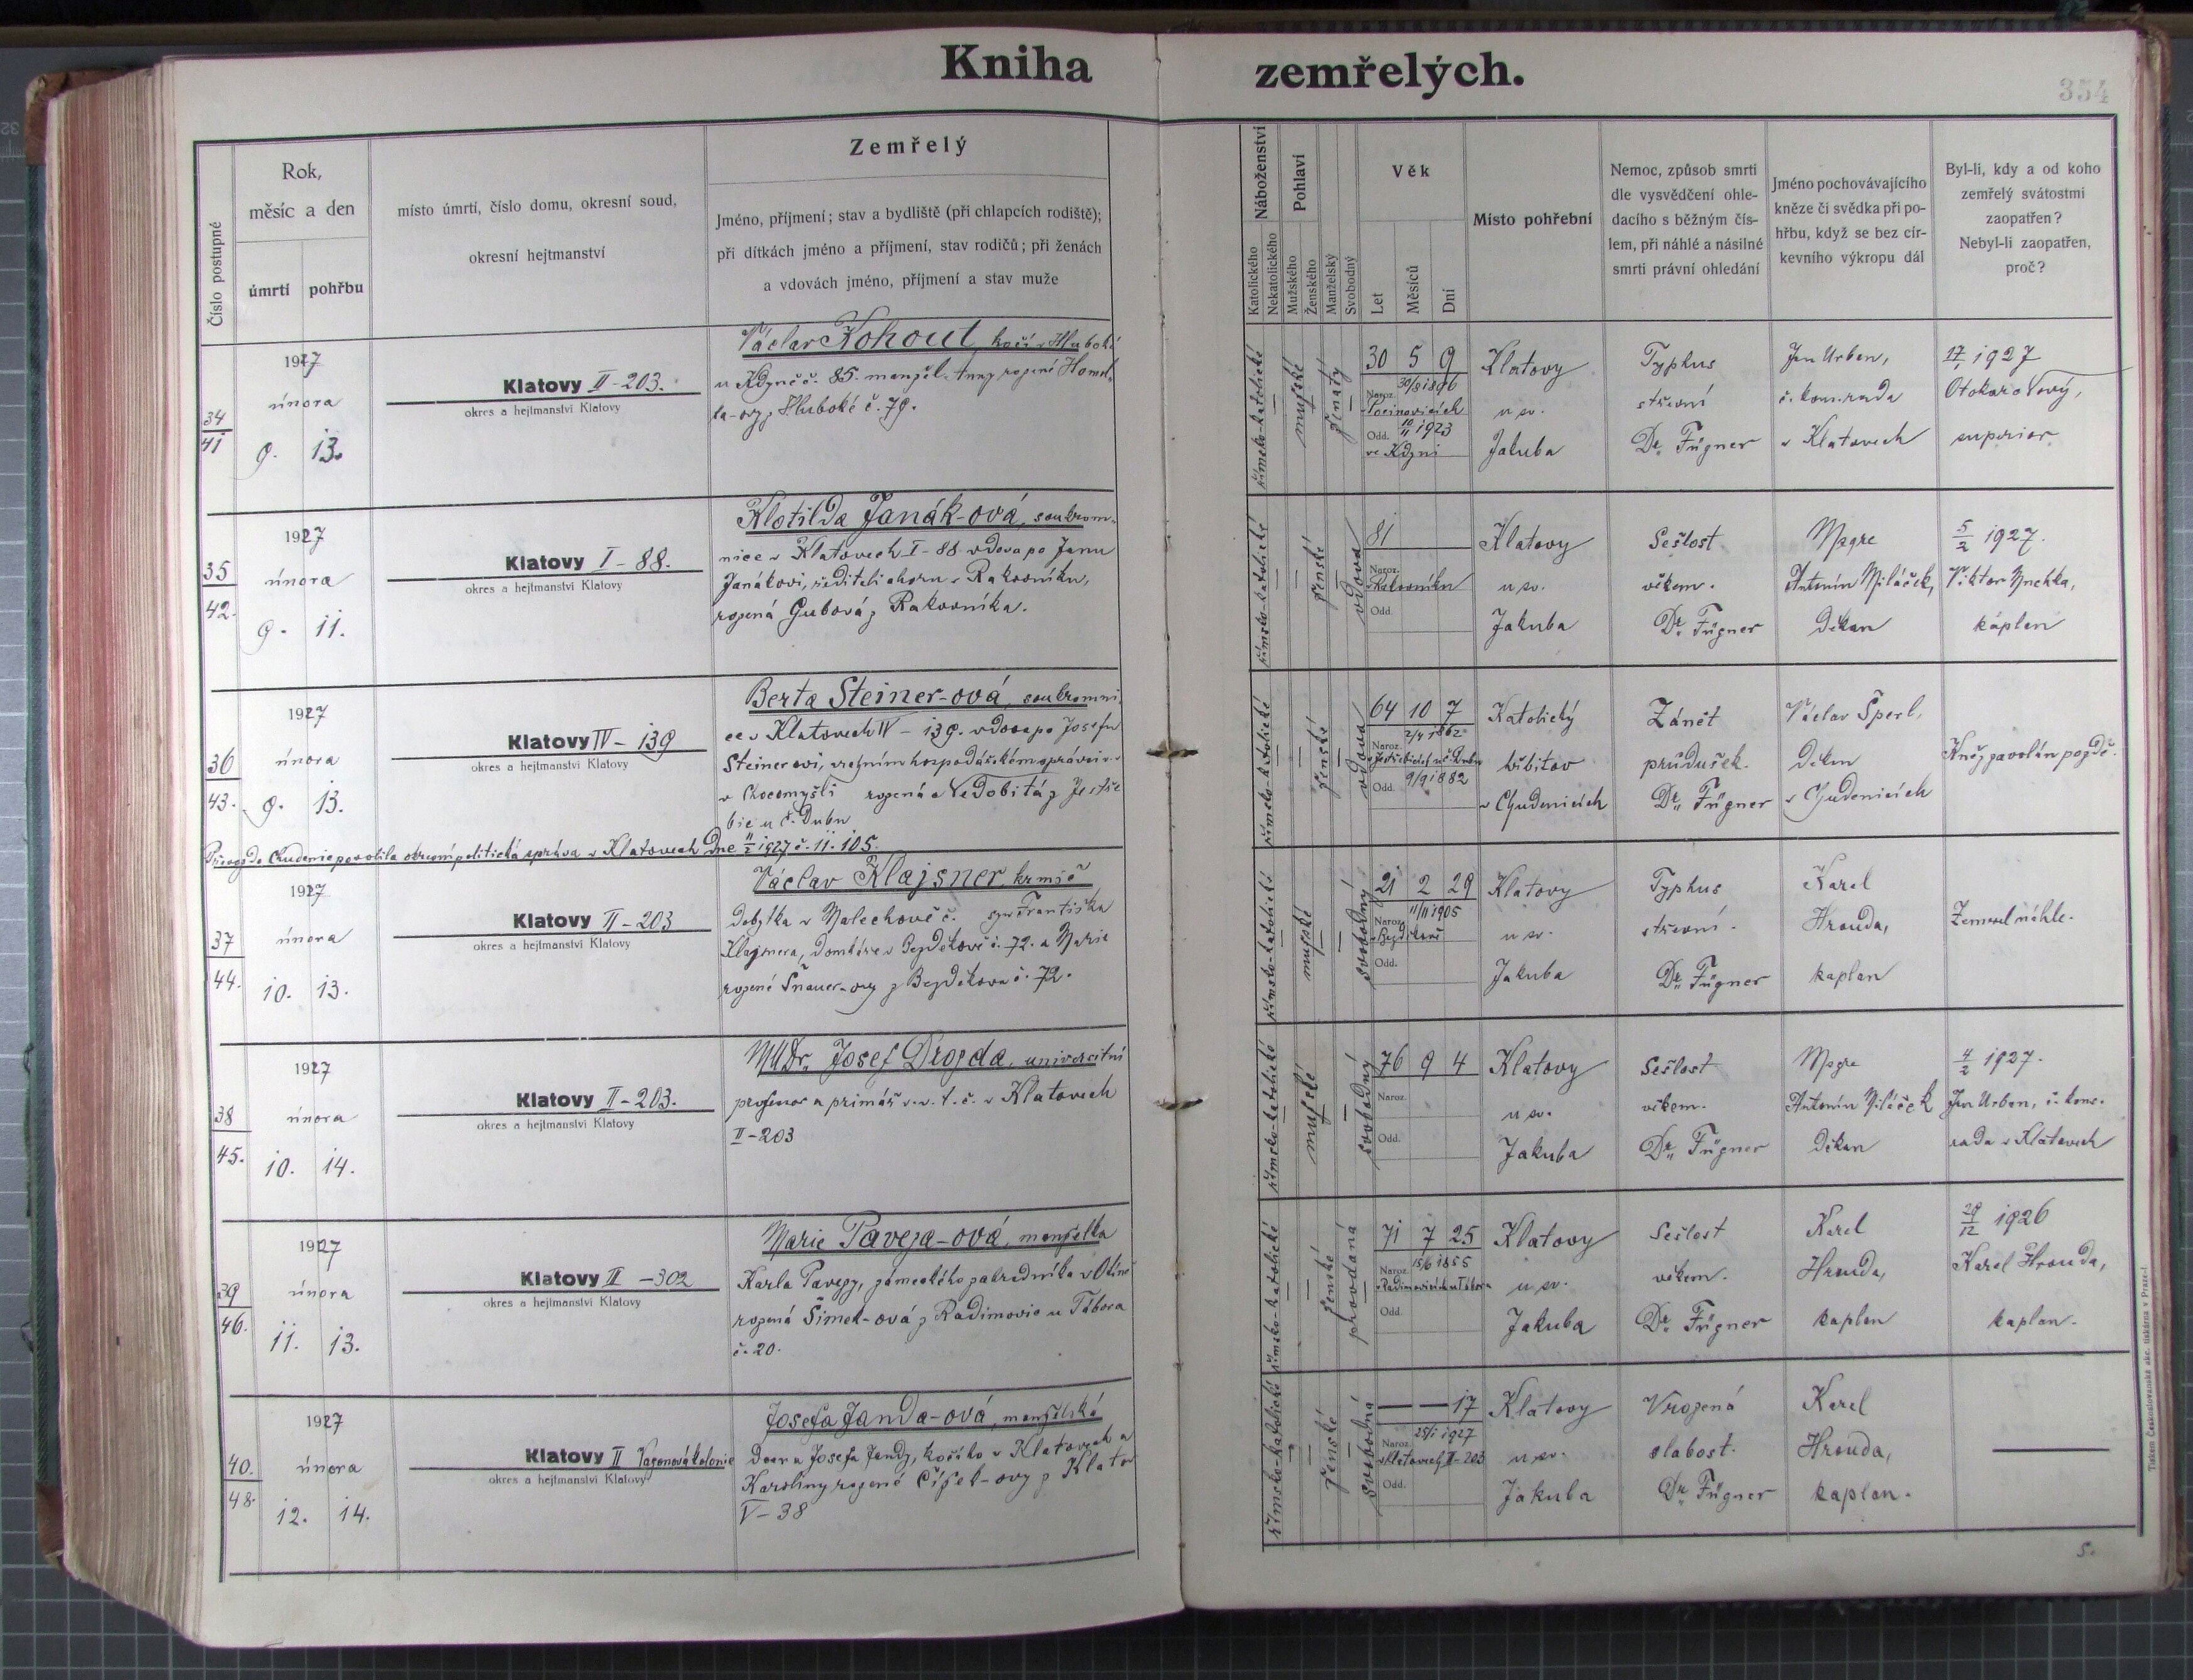 Kniha zemřelých.
354
Číslo postupné
Rok,
měsíc a den
úmrtí
pohřbu
místo úmrtí, číslo domu, okresní soud,
okresní hejtmanství
Zemřelý
Jméno, příjmení; stav a bydliště (při chlapcích rodiště);
při dítkách jméno a příjmení, stav rodičů; při ženách
a vdovách jméno, příjmení a stav muže
Náboženství
Katolického
Nekatolického
Pohlaví
Mužského
Ženského
Manželský
Svobodný
Věk
Let
Měsíců
Dní
Místo pohřební
Nemoc, způsob smrti
dle vysvědčení ohle-
dacího s běžným čís-
lem, při náhlé a násilné
smrti právní ohledání
Jméno pochovávajícího
kněze či svědka při po-
hřbu, když se bez cír-
kevního výkropu dál
Byl-li, kdy a od koho
zemřelý svátostmi
zaopatřen?
Nebyl-li zaopatřen,
proč?
34
41
1927
února
9. 13.
Klatovy II-203.
okres a hejtmanství Klatovy
Václav Kohout, kočí v Hluboké
u Kdyně č. 85. manžel Anny rozené
z Hluboké č. 79.
římsko-katolické
mužské
ženatý
30 5 9
30/8 1896
Naroz. Pocinovicích
Odd. 10/11 1923
ve Kdyni
Klatovy
u sv.
Jakuba
Typhus
střevní
Dr. Fügner
Jan Urban,
č. kons. rada
v Klatovech
17/1 1927
Otokar Nový,
superior
35
42.
1927
února
9. 11.
Klatovy I-88.
okres a hejtmanství Klatovy
Klotilda Janák-ová, soukrom-
nice v Klatovech I-88 vdova po Janu
Janákovi, řediteli v Rakovníku,
rozená Gubová z Rakovníka.
římsko-katolické
ženské
vdova
81
Naroz. Rakovníku
Odd.
Klatovy
u sv.
Jakuba
Sešlost
věkem.
Dr. Fügner
Msgre
Antonín Miláček,
děkan
5/2 1927.
Viktor
kaplan
36
43.
1927
února
9. 13.
Klatovy IV-139
okres a hejtmanství Klatovy
Berta Steiner-ová, soukromni-
ce v Klatovech IV-139. vdova po Josefu
Steinerovi, vrchním hospodářském správci
v Chocomyšli rozená Nedobitá z Jestře
bic u Č. Dubu
Převoz do Chudenic povolila okresní politická správa v Klatovech dne 11/2 1927 č. 11.105.
římsko-katolické
ženské
vdova
64 10 7
2/4 1862
Naroz. Jestřebicích u Č. Dubu
Odd. 9/9 1882
Katolický
hřbitov
v Chudenicích
Zánět
průdušek.
Dr. Fügner
Václav Šperl,
děkan
v Chudenicích
Kněz zavolán pozdě.
37
44.
1927
února
10. 13.
Klatovy II-203
okres a hejtmanství Klatovy
Václav Klajsner, krmič
dobytka v Malechově č. syn Františka
Klajsnera, domkáře v Bezděkově č. 72. a Marie
rozené Šnauer-ovy z Bezděkova č. 72.
římsko-katolické
mužské
svobodný
21 2 29
11/11 1905
Naroz. Bezděkově
Odd.
Klatovy
u sv.
Jakuba
Typhus
střevní.
Dr. Fügner
Karel
Hrouda,
kaplan
Zemřel náhle.
38
45.
1927
února
10. 14.
Klatovy II-203.
okres a hejtmanství Klatovy
MUDr. Josef Drozda, universitní
profesor a primář v. v. t. č. v Klatovech
II-203
římsko-katolické
mužské
svobodný
76 9 4
Naroz.
Odd.
Klatovy
u sv.
Jakuba
Sešlost
věkem.
Dr. Fügner
Msgre
Antonín Miláček
děkan
4/2 1927.
Jan Urban, č. kons.
rada v Klatovech
39
46.
1927
února
11. 13.
Klatovy II-302
okres a hejtmanství Klatovy
Marie Paveza-ová, manželka
Karla Pavezy, zámeckého zahradníka v
rozená Šimek-ová z Radimovic u Tábora
č. 20.
římsko-katolické
ženské
provdaná
71 7 25
15/6 1855
Naroz. Radimovicích u Tábora
Odd.
Klatovy
u sv.
Jakuba
Sešlost
věkem.
Dr. Fügner
Karel
Hrouda,
kaplan
29/12 1926
Karel Hrouda,
kaplan.
40.
48.
1927
února
12. 14.
Klatovy II Vagonová kolonie
okres a hejtmanství Klatovy
Josefa Janda-ová, manželská
dcera Josefa Jandy, kočího v Klatovech a
Karoliny rozené Čížek-ovy z Klatov
V-38
římsko-katolické
ženské
svobodná
— — 17
25/1 1927
Naroz. v Klatovech II-203
Odd.
Klatovy
u sv.
Jakuba
Vrozená
slabost.
Dr. Fügner
Karel
Hrouda,
kaplan.
S.
Tiskem Českoslovanská akc. tiskárna v Praze-I